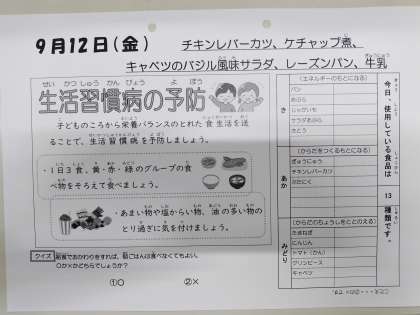 9月12日(金)
チキンレバーカツ、ケチャップ煮、
キャベツのバジル風味サラダ、レーズンパン、牛乳
せい かつ しゅう かん びょう よ ぼう
生活習慣病の予防
子どものころから栄養バランスのとれた食生活を送
ることで、生活習慣病を予防しましょう。
・1日3食、黄・赤・緑のグループの食
べ物をそろえて食べましょう。
・あまい物や塩からい物、油の多い物の
とり過ぎに気を付けましょう。
クイズ 給食でおかわりをすれば、朝ごはんは食べなくてもよい。
○か×かどちらでしょうか?
①○ ②×
き
(エネルギーのもとになる)
パン
あぶら
じゃがいも
サラダあぶら
さとう
あか
(からだをつくるもとになる)
ぎゅうにゅう
チキンレバーカツ
みどり
(からだのちょうしをととのえる)
たまねぎ
にんじん
トマト(かん)
グリンピース
キャベツ
今日、使用している食品は
13
種類です。